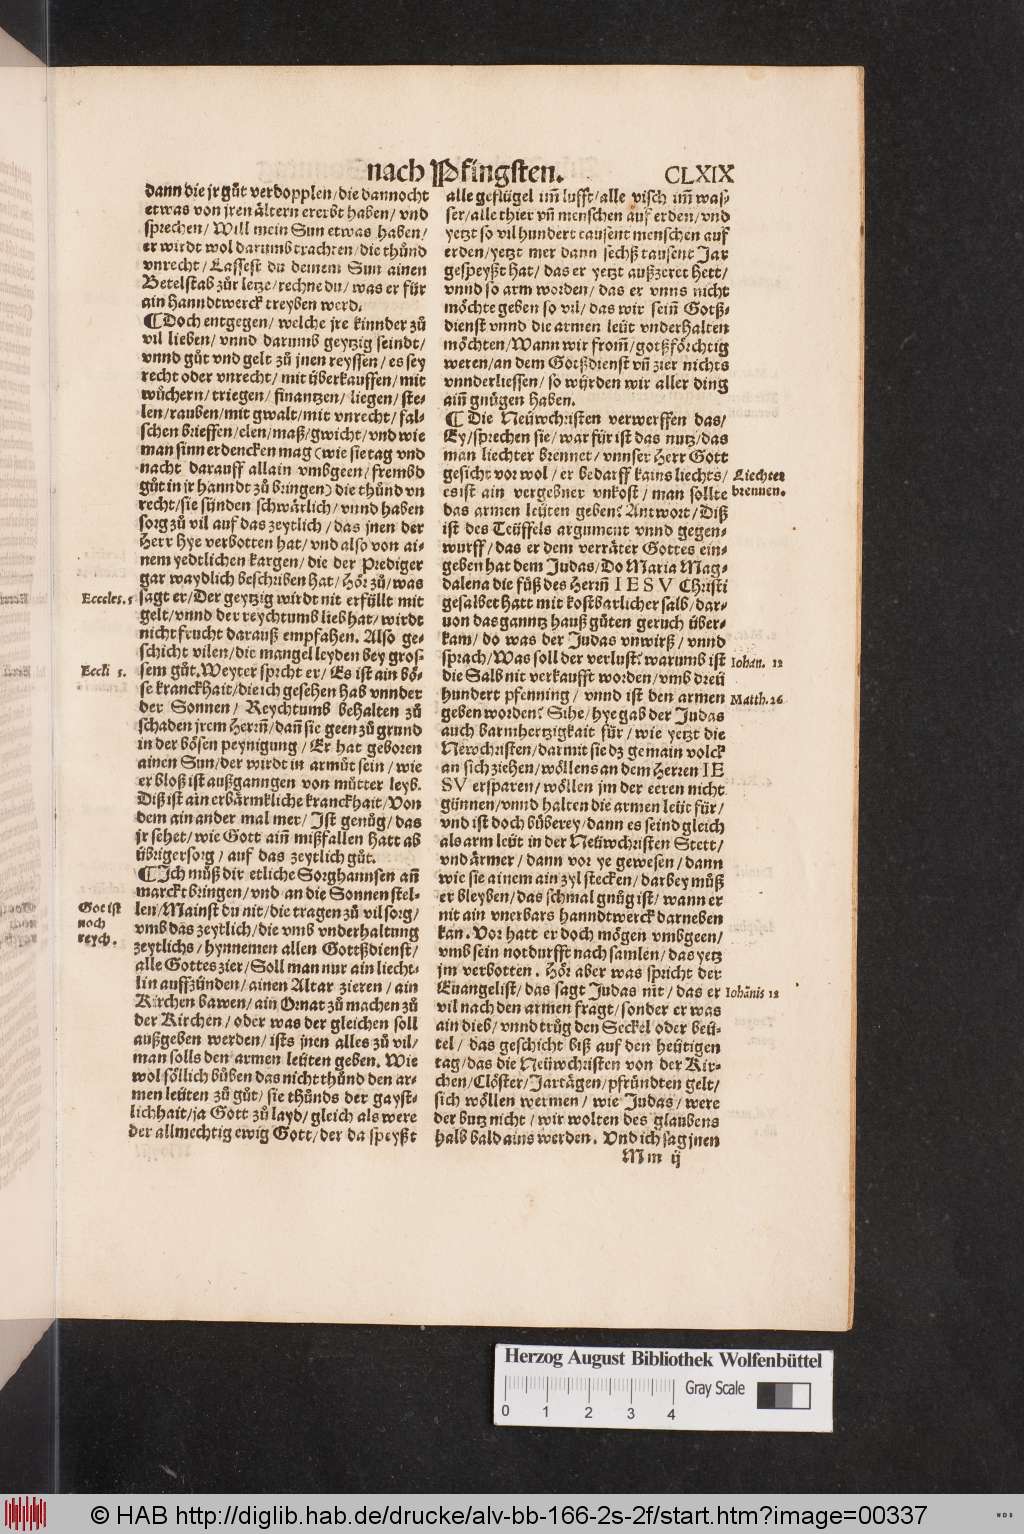 nach Pfingsten. CLXIX
dann die jr gůt verdopplen/die dannocht
etwas von jren ältern ererbt haben/ vnd
sprechen/ Will mein Sun etwas haben/
er wirdt wol darumb trachten/die thůnd
vnrecht/ Lassest du deinem Sun ainen
Betelstab zůr letze/rechne du/ was er für
ain hanndtwerck treyben werd.
¶Doch entgegen/ welche jre kinnder zů
vil lieben/ vnnd darumb geytzig seindt/
vnnd gůt vnd gelt zů jnen reyssen/es sey
recht oder vnrecht/ mit überkauffen/mit
wůchern/ triegen/ finantzen/ liegen/ ste-
len/rauben/mit gwalt/mit vnrecht/fal-
schen brieffen/elen/maß/gwicht/vnd wie
man sinn erdencken mag (wie sie tag vnd
nacht darauff allain vmbgeen/frembd
gůt in jr hanndt zů bringen) die thůnd vn
recht/sie sünden schwärlich/vnnd haben
sorg zů vil auf das zeytlich/das jnen der
Herr hye verbotten hat/vnd also von ai-
nem yedtlichen kargen/ die der Prediger
gar waydlich beschriben hat/ Hör zů/was
Eccles. 5
sagt er/Der geytzig wirdt nit erfüllt mit
gelt/vnnd der reychtumb lieb hat/ wirdt
nicht frucht darauß empfahen. Also ge-
schicht vilen/die mangel leyden bey gros-
Eccli 5.
sem gůt. Weyter spricht er/ Es ist ain bö-
se kranckhait/die ich gesehen hab vnnder
der Sonnen/ Reychtumb behalten zů
schaden jrem Herrñ/dañ sie geen zů grund
in der bösen peynigung/ Er hat geboren
ainen Sun/der wirdt in armůt sein/ wie
er bloß ist außganngen von můtter leyb.
Diß ist ain erbärmkliche kranckhait/Von
dem ain ander mal mer/ Ist genůg/das
jr sehet/wie Gott aiñ mißfallen hatt ab
übriger sorg/ auf das zeytlich gůt.
¶Ich můß dir etliche Sorghannsen añ
marckt bringen/vnd an die Sonnen stel-
Got ist
noch
reych.
len/Mainst du nit/die tragen zů vil sorg/
vmb das zeytlich/die vmb vnderhaltung
zeytlichs/hynnemen allen Gottßdienst/
alle Gottes zier/Soll man nur ain liecht-
lin auffzünden/ainen Altar zieren/ ain
Kirchen bawen/ain Ornat zů machen zů
der Kirchen/ oder was der gleichen soll
außgeben werden/ists jnen alles zů vil/
man solls den armen leüten geben. Wie
wol söllich bůben das nicht thůnd den ar-
men leüten zů gůt/ sie thůnds der gayst-
lichhait/ja Gott zů layd/gleich als were
der allmechtig ewig Gott/der da speyßt
alle geflügel im̃ lufft/alle visch im̃ was-
ser/alle thier vñ menschen auf erden/vnd
yetzt so vil hundert tausent menschen auf
erden/yetzt mer dann sechß tausent Jar
gespeyßt hat/das er yetzt außzeret hett/
vnnd so arm worden/das er vnns nicht
möchte geben so vil/das wir seiñ Gotß-
dienst vnnd die armen leüt vnderhalten
möchten/Wann wir from̃/gotßförchtig
weren/an dem Gotßdienst vñ zier nichts
vnnderliessen/so würden wir aller ding
aiñ gnůgen haben.
¶ Die Neüwchristen verwerffen das/
Ey/sprechen sie/war für ist das nutz/das
man liechter brennet/ vnnser Herr Gott
gesicht vor wol/ er bedarff kains liechts/
Liechter
brennen.
es ist ain vergebner vnkost/man sollte
das armen leüten geben? Antwort/Diß
ist des Teüffels argument vnnd gegen-
wurff/das er dem verräter Gottes ein-
geben hat dem Judas/Do Maria Mag-
dalena die füß des Herrñ IESV Christi
gesalbet hatt mit kostbarlicher salb/dar-
uon das ganntz hauß gůten geruch über-
kam/ do was der Judas vnwirß/ vnnd
sprach/Was soll der verlust? warumb ist
Iohan. 12
die Salb nit verkaufft worden/vmb dreü
hundert pfenning/ vnnd ist den armen
Matth. 26
geben worden? Sihe/hye gab der Judas
auch barmhertzigkait für/ wie yetzt die
Newchristen/darmit sie dz gemain volck
an sich ziehen/wöllens an dem Herren IE
SV ersparen/wöllen jm der eeren nicht
günnen/vnnd halten die armen leüt für/
vnd ist doch bůberey/dann es seind gleich
als arm leüt in der Neüwchristen Stett/
vnd ärmer/ dann vor ye gewesen/dann
wie sie ainem ain zyl stecken/darbey můß
er bleyben/das schmal gnůg ist/wann er
nit ain vnerbars hanndtwerck darneben
kan. Vor hatt er doch mögen vmbgeen/
vmb sein notdurfft nach samlen/das yetz
jm verbotten. Hör aber was spricht der
Euangelist/das sagt Judas nit/das er
Iohānis 12
vil nach den armen fragt/sonder er was
ain dieb/vnnd trůg den Seckel oder beü-
tel/ das geschicht biß auf den heütigen
tag/das die Neüwchristen von der Kir-
chen/Clöster/Jartägen/pfründten gelt/
sich wöllen wermen/ wie Judas/were
der butz nicht/wir wolten des glaubens
halb bald ains werden. Vnd ich sag jnen
Mm ij
Herzog August Bibliothek Wolfenbüttel
Gray Scale
0 1 2 3 4
© HAB http://diglib.hab.de/drucke/alv-bb-166-2s-2f/start.htm?image=00337